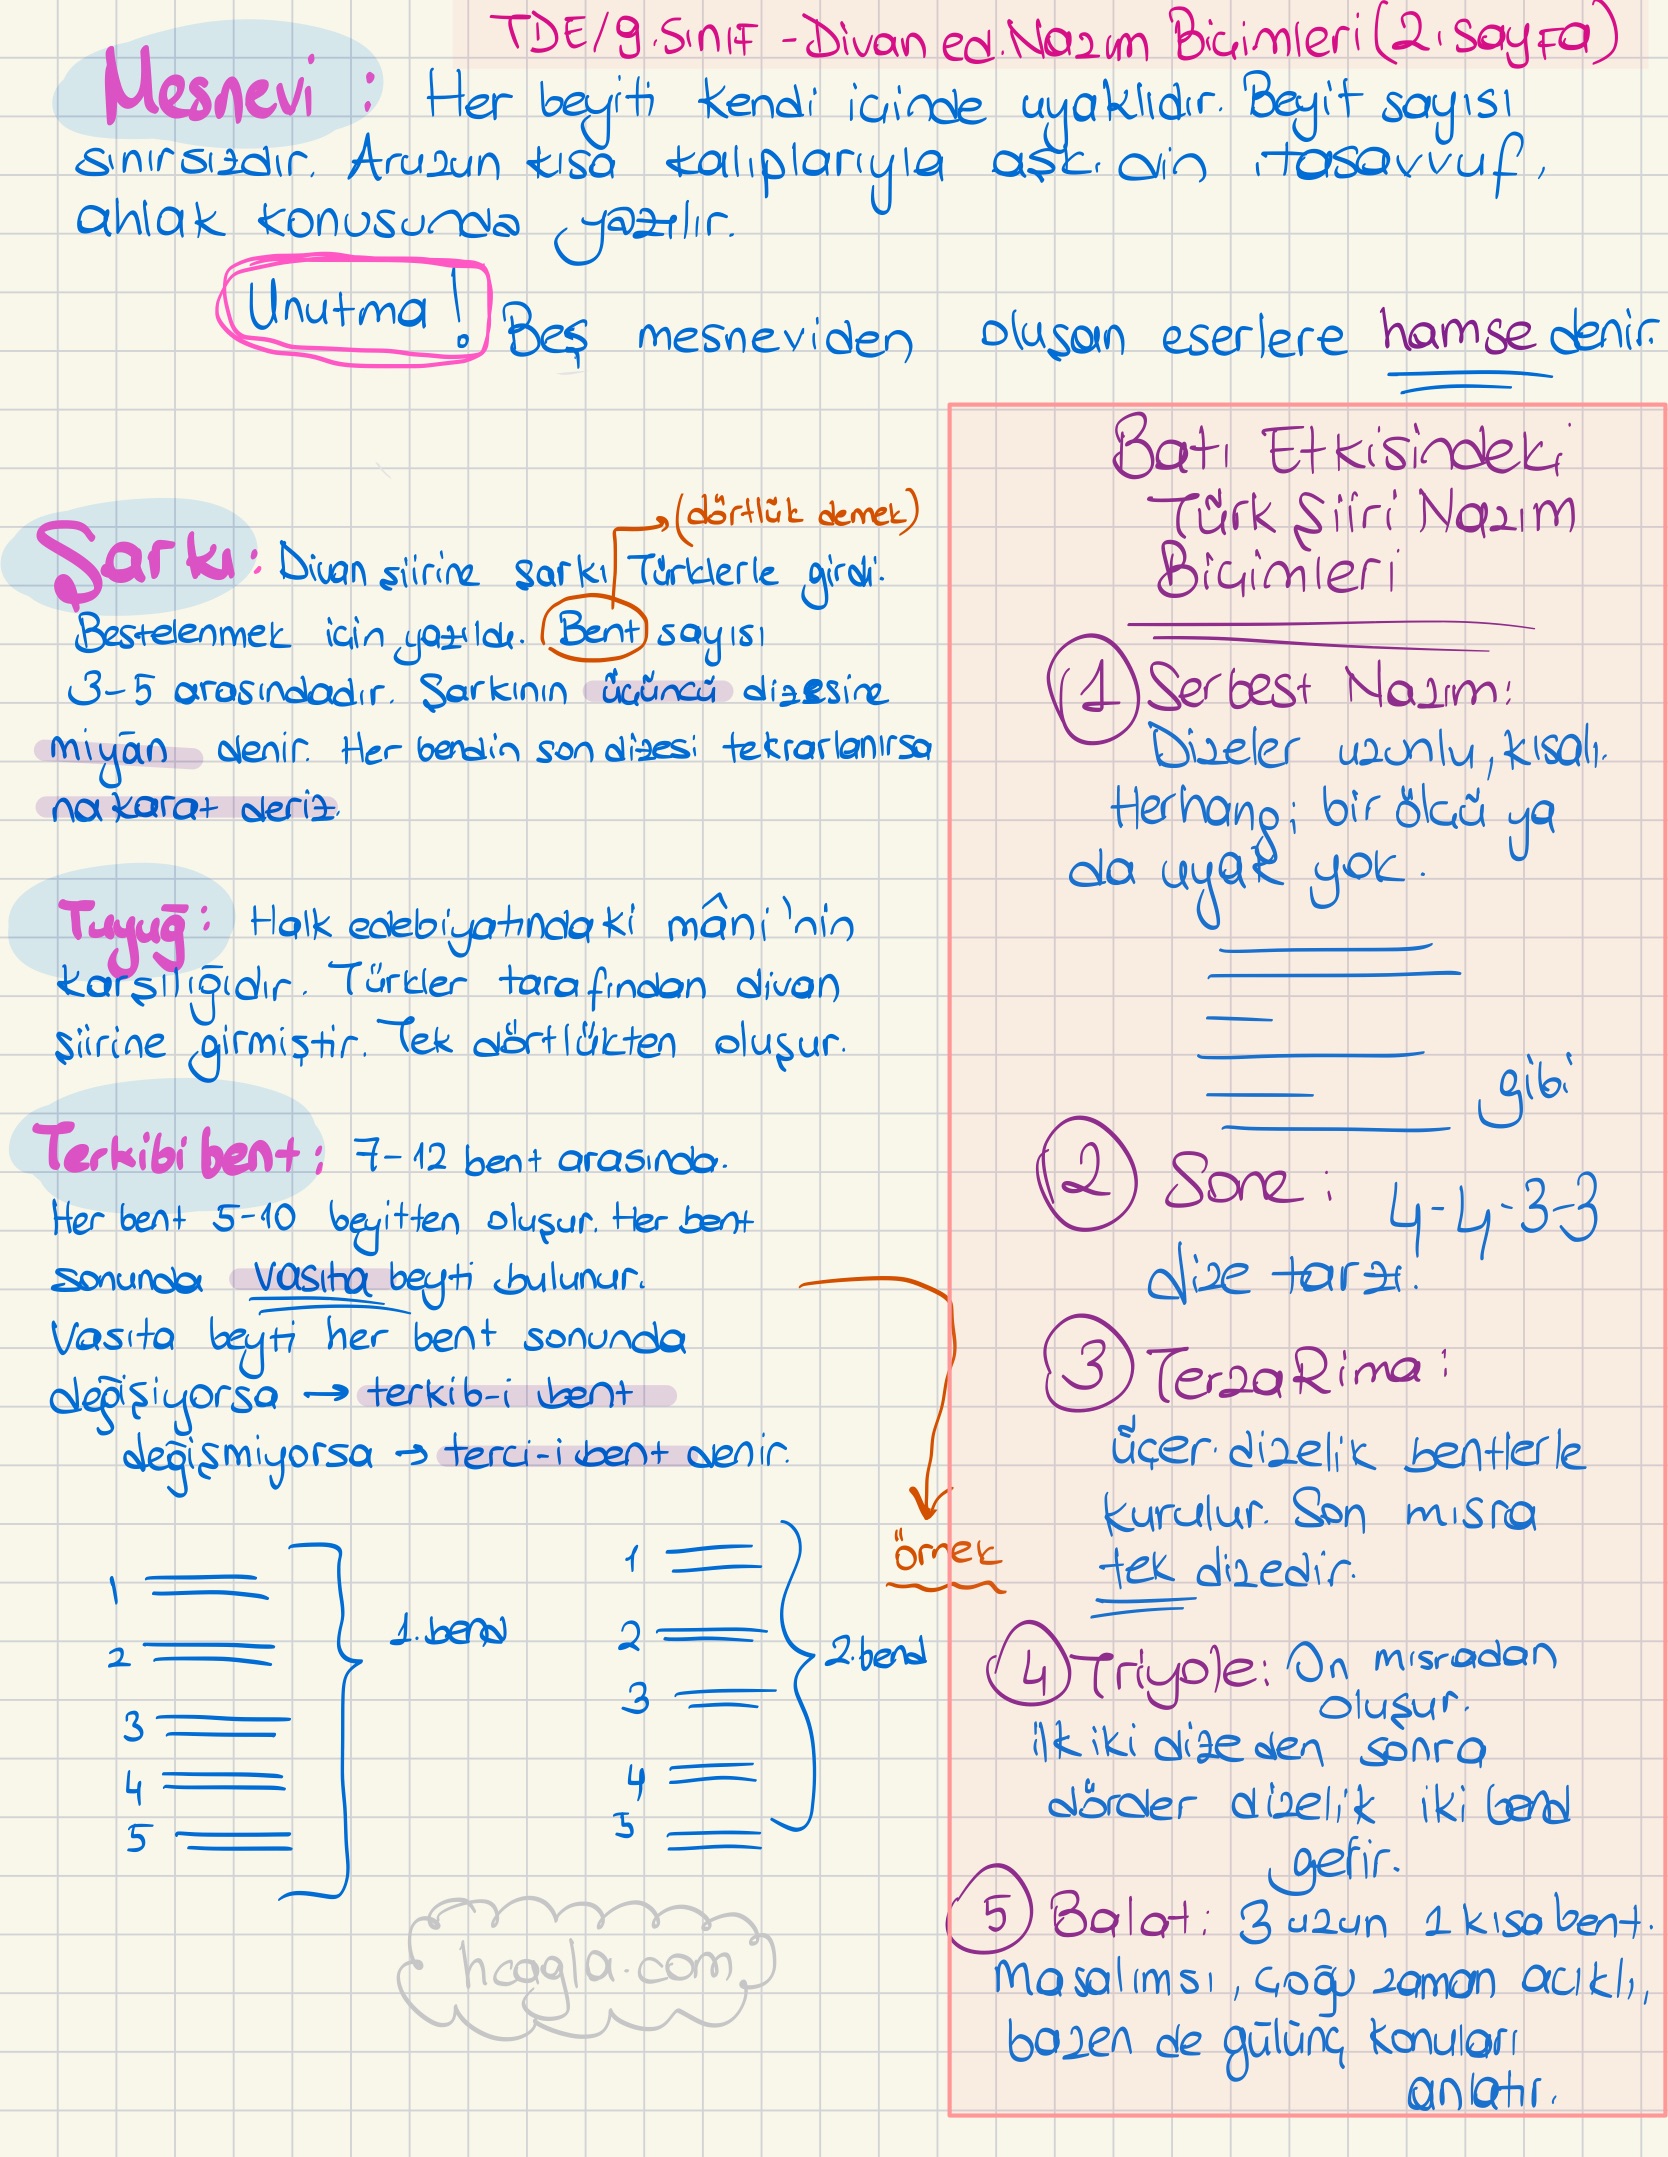 TDE/9.Sınıf - Divan ed. Nazım Biçimleri (2. Sayfa)
Mesnevi : Her beyiti kendi içinde uyaklıdır. Beyit sayısı
sınırsızdır. Aruzun kısa kalıplarıyla aşk, din, tasavvuf,
ahlak konusunda yazılır.
Unutma! Beş mesneviden oluşan eserlere hamse denir.
(dörtlük demek)
Şarkı: Divan şiirine şarkı Türklerle girdi.
Bestelenmek için yazıldı. Bent sayısı
3-5 arasındadır. Şarkının üçüncü dizesine
miyân denir. Her bendin son dizesi tekrarlanırsa
nakarat deriz.
Tuyuğ: Halk edebiyatındaki mâni'nin
karşılığıdır. Türkler tarafından divan
şiirine girmiştir. Tek dörtlükten oluşur.
Terkibi bent: 7-12 bent arasında.
Her bent 5-10 beyitten oluşur. Her bent
sonunda vasıta beyti bulunur.
Vasıta beyti her bent sonunda
değişiyorsa → terkib-i bent
değişmiyorsa → terci-i bent denir.
örnek
1
2
3
4
5
1.bend
1
2
3
4
5
2.bend
hcagla.com
Batı Etkisindeki
Türk Şiiri Nazım
Biçimleri
1 Serbest Nazım:
Dizeler uzunlu, kısalı.
Herhangi bir ölçü ya
da uyak yok.
gibi
2 Sone : 4-4-3-3
dize tarzı.
3 TerzaRima :
üçer dizelik bentlerle
kurulur. Son mısra
tek dizedir.
4 Triyole: On mısradan
oluşur.
ilk iki dizeden sonra
dörder dizelik iki bend
gelir.
5 Balat: 3 uzun 1 kısa bent.
Masalımsı, çoğu zaman acıklı,
bazen de gülünç konuları
anlatır.